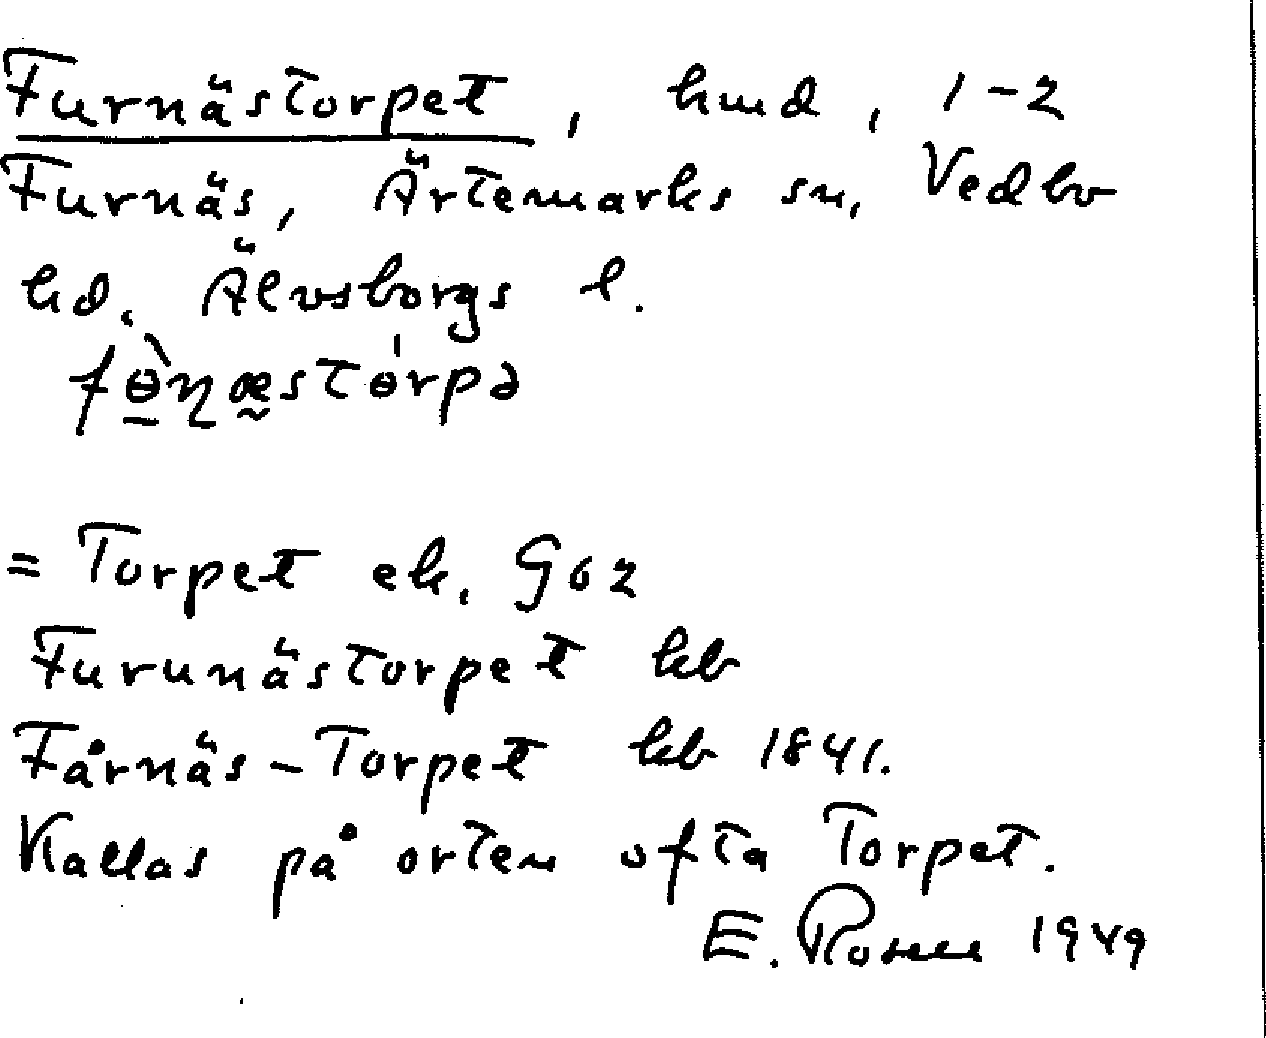 Furnästorpet, hmd, 1-2
Furnäs, Ärtemarks sn, Vedbo
hd. Älvsborgs l.
fɵ̀ŋæstɵ́rpə
= Torpet ek. G62
Furunästorpet kb
Fårnäs-Torpet kb 1841.
Kallas på orten ofta Torpet.
E. Rosell 1949